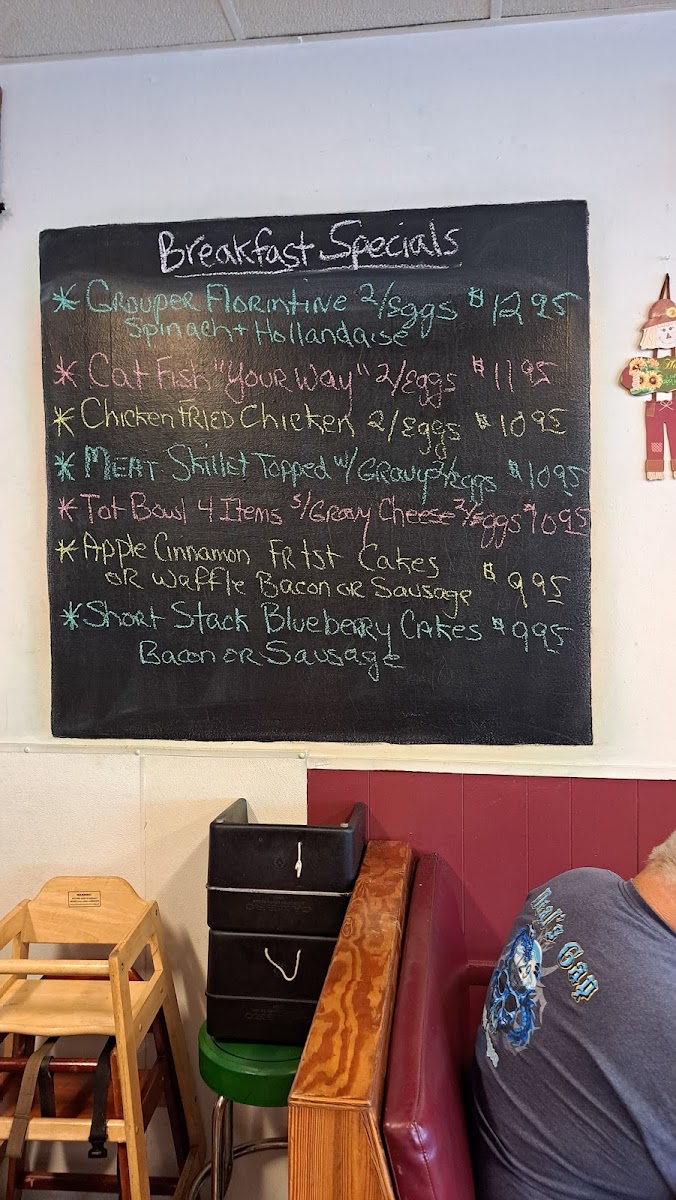 Breakfast Specials
* Grouper Florintine 2/Eggs $12.95
Spinach + Hollandaise
* Cat Fish "Your Way" 2/Eggs $11.95
* Chicken FRIED Chicken 2/Eggs $10.95
* MEAT Skillet Topped w/ GRAVY 2/Eggs $10.95
* Tot Bowl 4 Items S/GRavy Cheese 2/Eggs $10.95
* Apple Cinnamon FRtst Cakes
OR Waffle Bacon OR Sausage $9.95
* Short Stack Blueberry Cakes $9.95
Bacon OR Sausage
WARNING
Gap